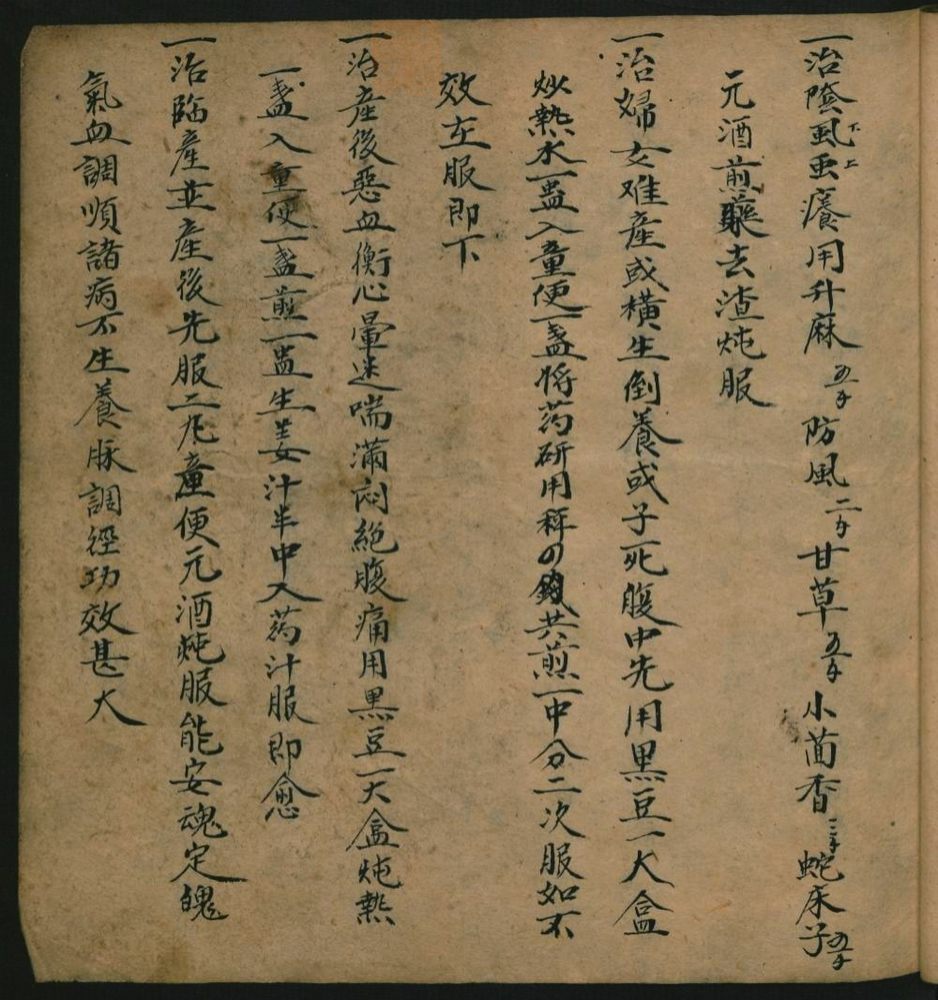 一治陰虱虫癢用升麻五錢防風二錢甘草五錢小茴香三錢蛇床子五錢
元酒煎藥去渣炖服
一治婦女难產或橫生倒養或子死腹中先用黑豆一大盒
炒熱水一盅入童便一盏将药研用秤的鈎共煎一中分二次服如不
效左服即下
一治產後惡血衡心暈迷喘滿闷絕腹痛用黑豆一大盒炖熱
一盏入童便一盏煎一盅生姜汁半中入药汁服即愈
一治臨產並產後先服二丸童便元酒炖服能安魂定魄
氣血調順諸病不生養脉調經功效甚大